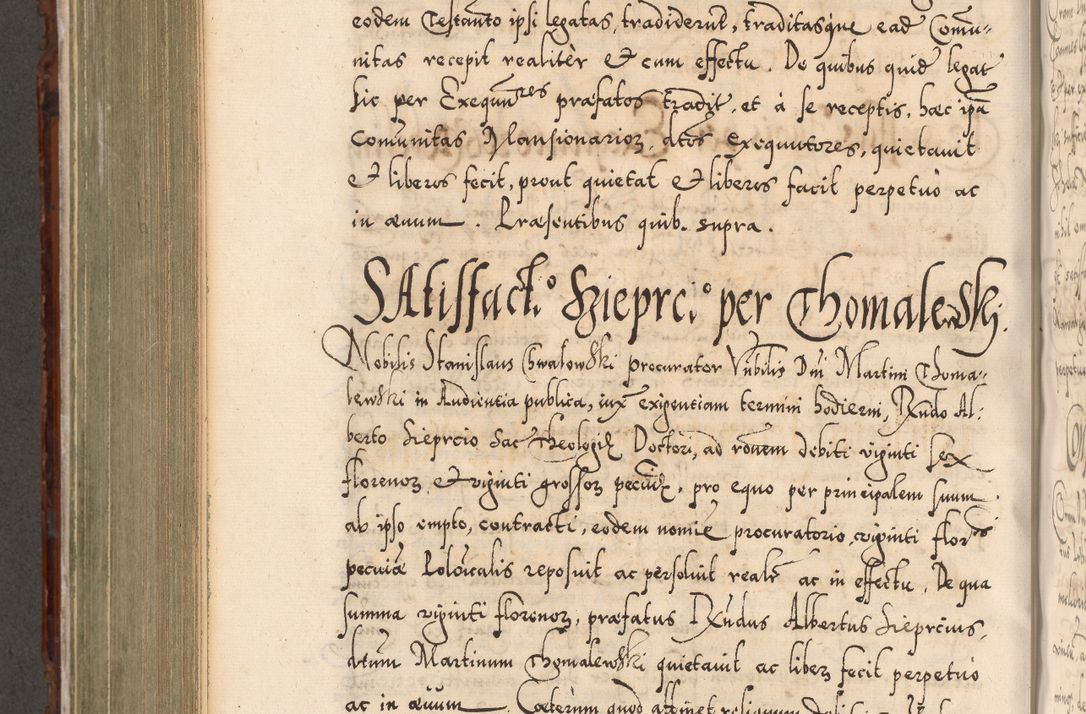 eodem Testanto ipsi legatas, tradiderunt, traditasque ead Comu-
nitas recepit realitèr & cum effectu. De quibus quid legat
sic per Exequutres præfatos tradit, et à se receptis, hæc ipa
Comunitas Mansionarioz, dtos Exequutores, quietauit
& liberos fecit, prout quietat & liberos facit perpetuò ac
in æuum. Præsentibus quib. supra.
SAtisfacto Sziepreio per Thomalewski.
Nobilis Stanislaus Chwalowski procurator Nobilis Dni Martini Thoma-
lewski in Audientia publica, iux exigentiam termini hodierni, Rndo Al-
berto Siepreio Sac Theologiæ Doctori, ad ronem debiti viginti sex
florenoz & viginti grossoz pecuniæ, pro equo per principalem suum
ab ipso empto, contracti, eodem nomie procuratorio, viginti flor
pecuiæ Polonicalis reposuit ac persoluit realr ac in effectu. De qua
summa viginti florenoz, præfatus Rndus Albertus Sieprcius,
dtum Martinum Thomalewski quietauit ac liberz fecit perpetuò
ac in æuum. Cæterùm quod attinet reliquum